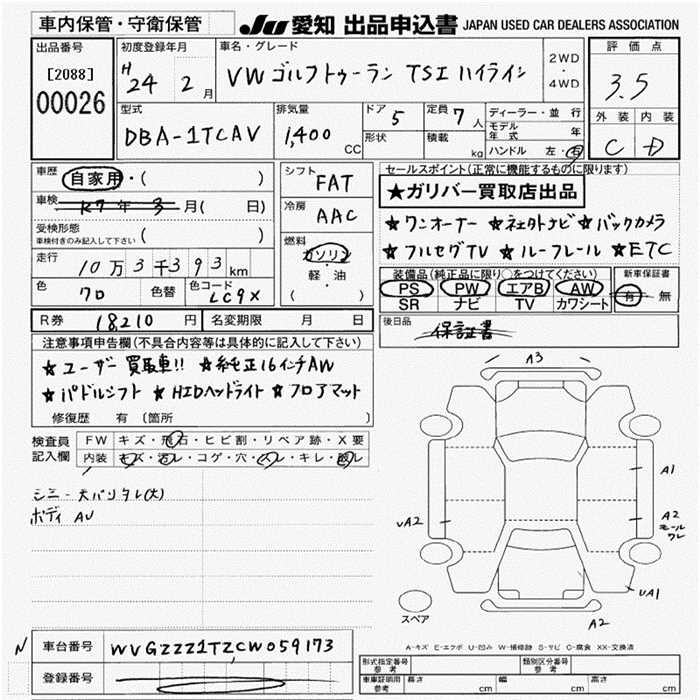 車内保管・守衛保管
JU 愛知 出品申込書 JAPAN USED CAR DEALERS ASSOCIATION
出品番号 [2088] 00026
初度登録年月 H24 2月
車名・グレード VW ゴルフトゥーラン TSI ハイライン
2WD・4WD
評価点 3.5
外装 内装
C D
型式 DBA-1TCAV
排気量 1,400 CC
ドア 5
形状
定員 7人
積載 kg
ディーラー・並行
モデル年式 年
ハンドル 左・右
車歴 自家用・( )
車検 R7年3月( 日)
受検形態 ( )
車検付きのみ記入して下さい
走行 10万3千393km
色 クロ 色替 色コード LC9X
シフト FAT
冷房 AAC
燃料 ガソリン・軽・油 ( )
セールスポイント(正常に機能するものに限ります)
★ガリバー買取店出品
★ワンオーナー ★社外ナビ ★バックカメラ
★フルセグTV ★ルーフレール ★ETC
装備品(純正品に限り○をつけてください)
PS PW エアB AW
SR ナビ TV カワシート
新車保証書
有 無
R券 18210円
名変期限 月 日
後日品 保証書
注意事項申告欄(不具合内容等は具体的に記入して下さい)
★ユーザー買取車!! ★純正16インチAW
★パドルシフト ★HIDヘッドライト ★フロアマット
修復歴 有 〔箇所 〕
検査員記入欄
FW キズ・飛石・ヒビ割・リペア跡・X要
内装 キズ・汚レ・コゲ・穴・スレ・キレ・腐レ
シミ-天バリタレ(大)
ボディ AU
A3
A1
A2
モールワレ
UA2
UA1
A2
スペア
A-キズ E-エクボ U-凹み W-補修跡 S-サビ C-腐食 XX-交換済
N 車台番号 WVGZZZ1TZCW059173
登録番号
形式指定番号 参考
類別区分番号 参考
車庫証明用 参考 長さ cm 幅 cm 高さ cm